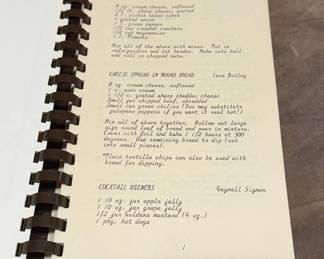 8 oz. cream cheese, softened
1/2 lb. sharp cheese, grated
1 t. pickle salad cubes
1 grated onion
1 green pepper
1/2 cup crushed crackers
1/2 cup mayonnaise
1 Pimento
Mix all of the above with mixer. Put in
refrigerator and let harden. Make into ball
and roll in chopped nuts.
CHEESE SPREAD IN ROUND BREAD
8 oz. cream cheese, softened
1 c. sour cream
1 1/2 c. grated sharp cheddar cheese
Small jar chipped beef, shredded
Small can green chilies (You may substitute
jalapeno peppers if you want it real hot!)
Mix all of above together. Hollow out large
size round loaf of bread and pour in mixture.
Cover with foil and bake 1 1/2 hours at 300
degrees. Use remaining bread to dip (cut
into small pieces).
Plain tortilla chips can also be used with
bread for dipping.
COCKTAIL WIENERS Gaynell Sigmon
1 10 oz. jar apple jelly
1 10 oz. jar grape jelly
1/2 jar Guldens mustard (4 oz.)
1 pkg. hot dogs
1